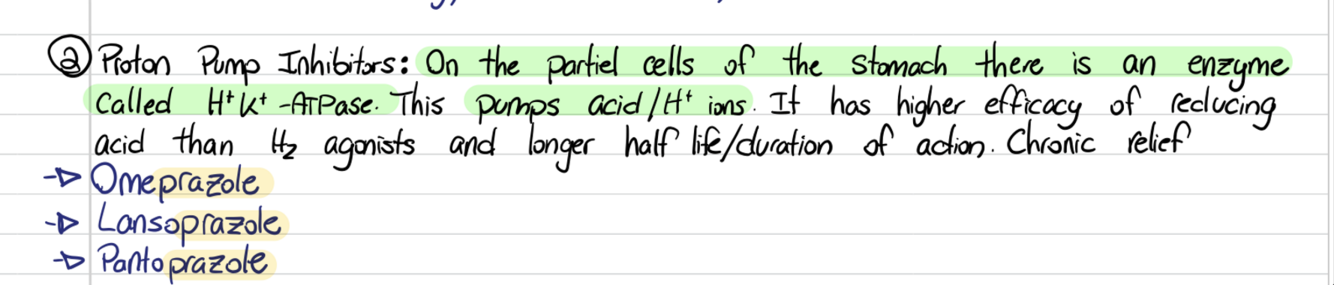 ② Proton Pump Inhibitors: On the partiel cells of the stomach there is an enzyme
called H⁺K⁺-ATPase. This pumps acid/H⁺ ions. It has higher efficacy of reducing
acid than H₂ agonists and longer half life/duration of action. Chronic relief
→ Omeprazole
→ Lansoprazole
→ Pantoprazole